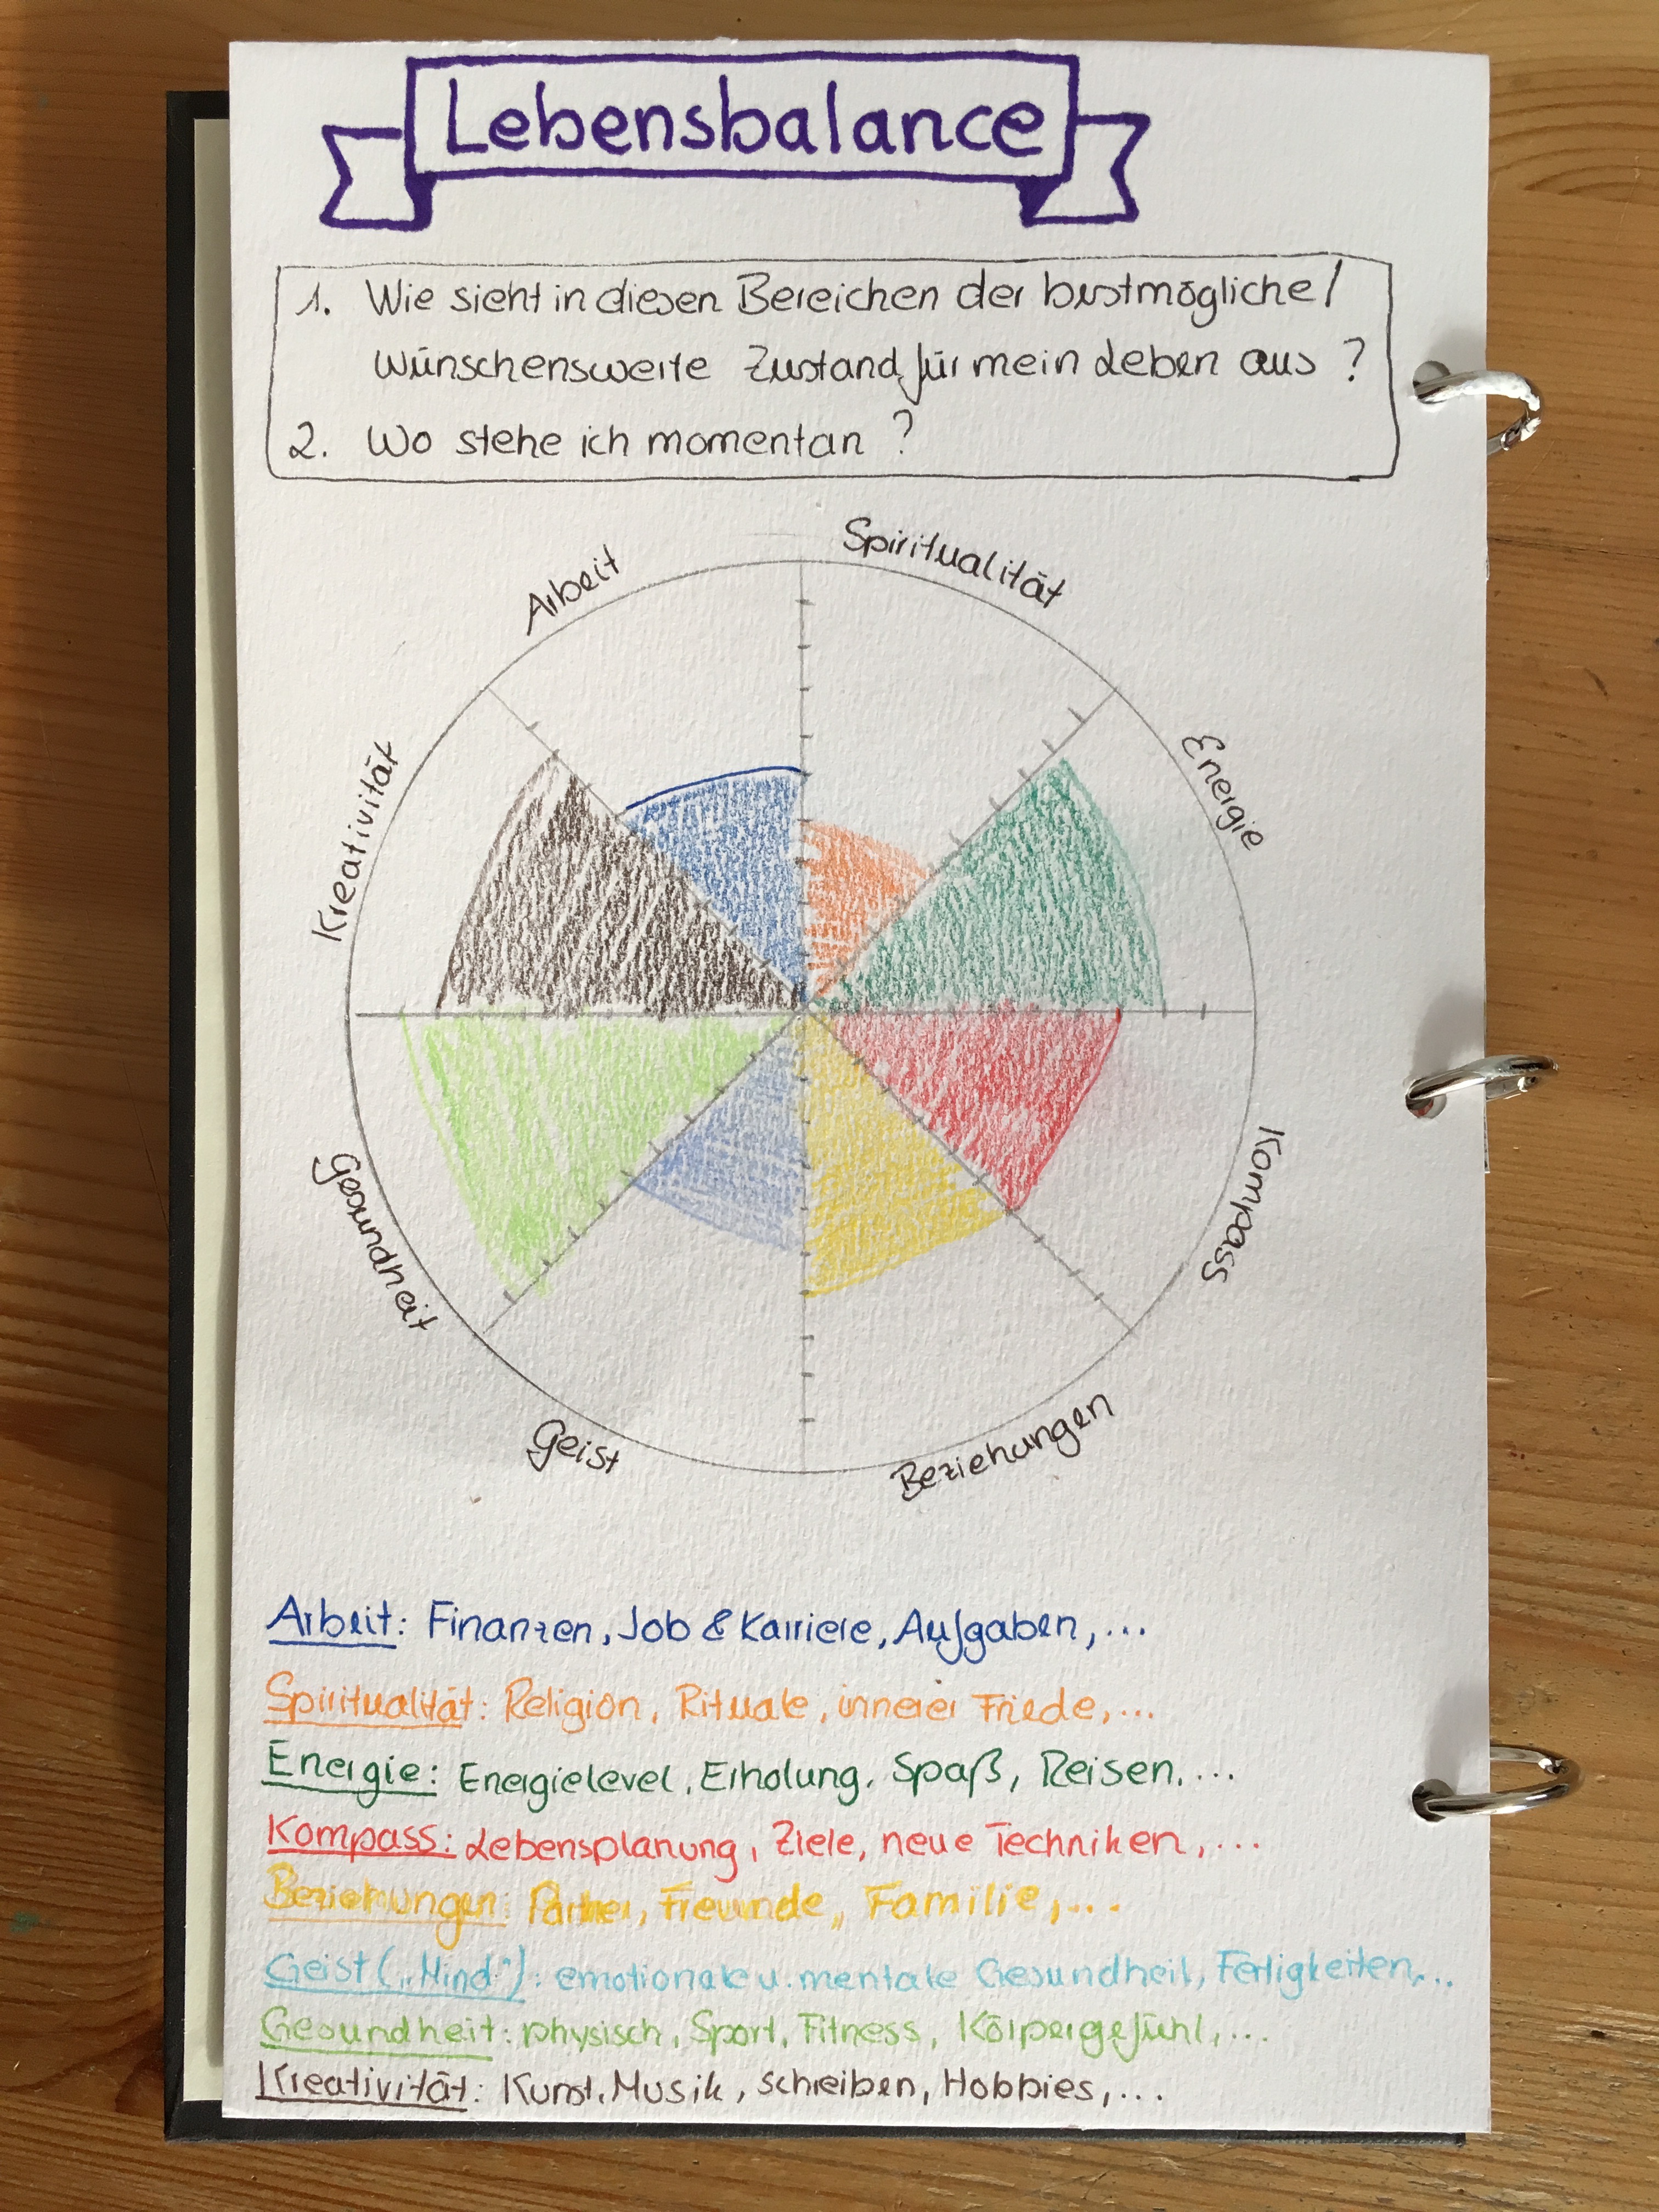 Lebensbalance
1. Wie sieht in diesen Bereichen der bestmögliche/
wünschenswerte Zustand für mein Leben aus?
2. Wo stehe ich momentan?
Arbeit
Spiritualität
Kreativität
Energie
Gesundheit
Kompass
Geist
Beziehungen
Arbeit: Finanzen, Job & Karriere, Aufgaben, ...
Spiritualität: Religion, Rituale, innerer Friede, ...
Energie: Energielevel, Erholung, Spaß, Reisen, ...
Kompass: Lebensplanung, Ziele, neue Techniken, ...
Beziehungen: Partner, Freunde, Familie, ...
Geist („Mind“): emotionale u. mentale Gesundheit, Fertigkeiten, ...
Gesundheit: physisch, Sport, Fitness, Körpergefühl, ...
Kreativität: Kunst, Musik, schreiben, Hobbies, ...